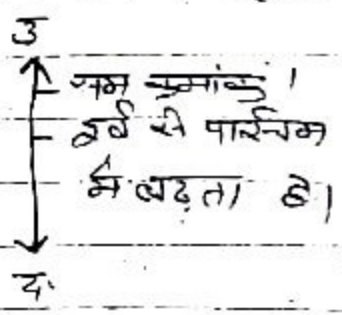 उ
क्रमांक ।
पूर्व से पश्चिम
में बढ़ता है।
द.